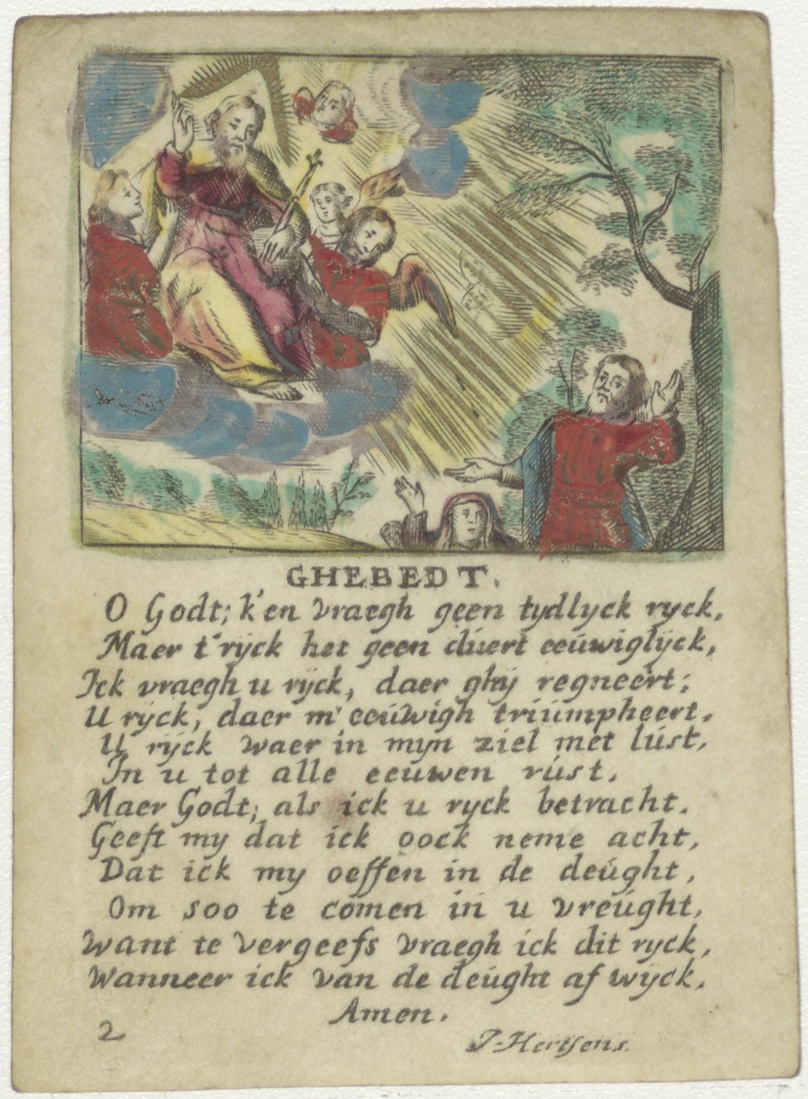 GHEBEDT.
O Godt; k'en vraegh geen tydlyck ryck,
Maer t'ryck het geen dúert eeúwiglyck,
Ick vraegh u ryck, daer ghy regneért;
U ryck, daer m'eeúwigh triúmpheert.
U ryck waer in myn ziel met lúst,
In u tot alle eeuwen rúst.
Maer Godt, als ick u ryck betracht.
Geeft my dat ick oock neme acht,
Dat ick my oeffen in de deúght,
Om soo te comen in u vreúght,
Want te vergeefs vraegh ick dit ryck,
Wanneer ick van de deúght af wyck,
Amen.
2
J-Hertsens.